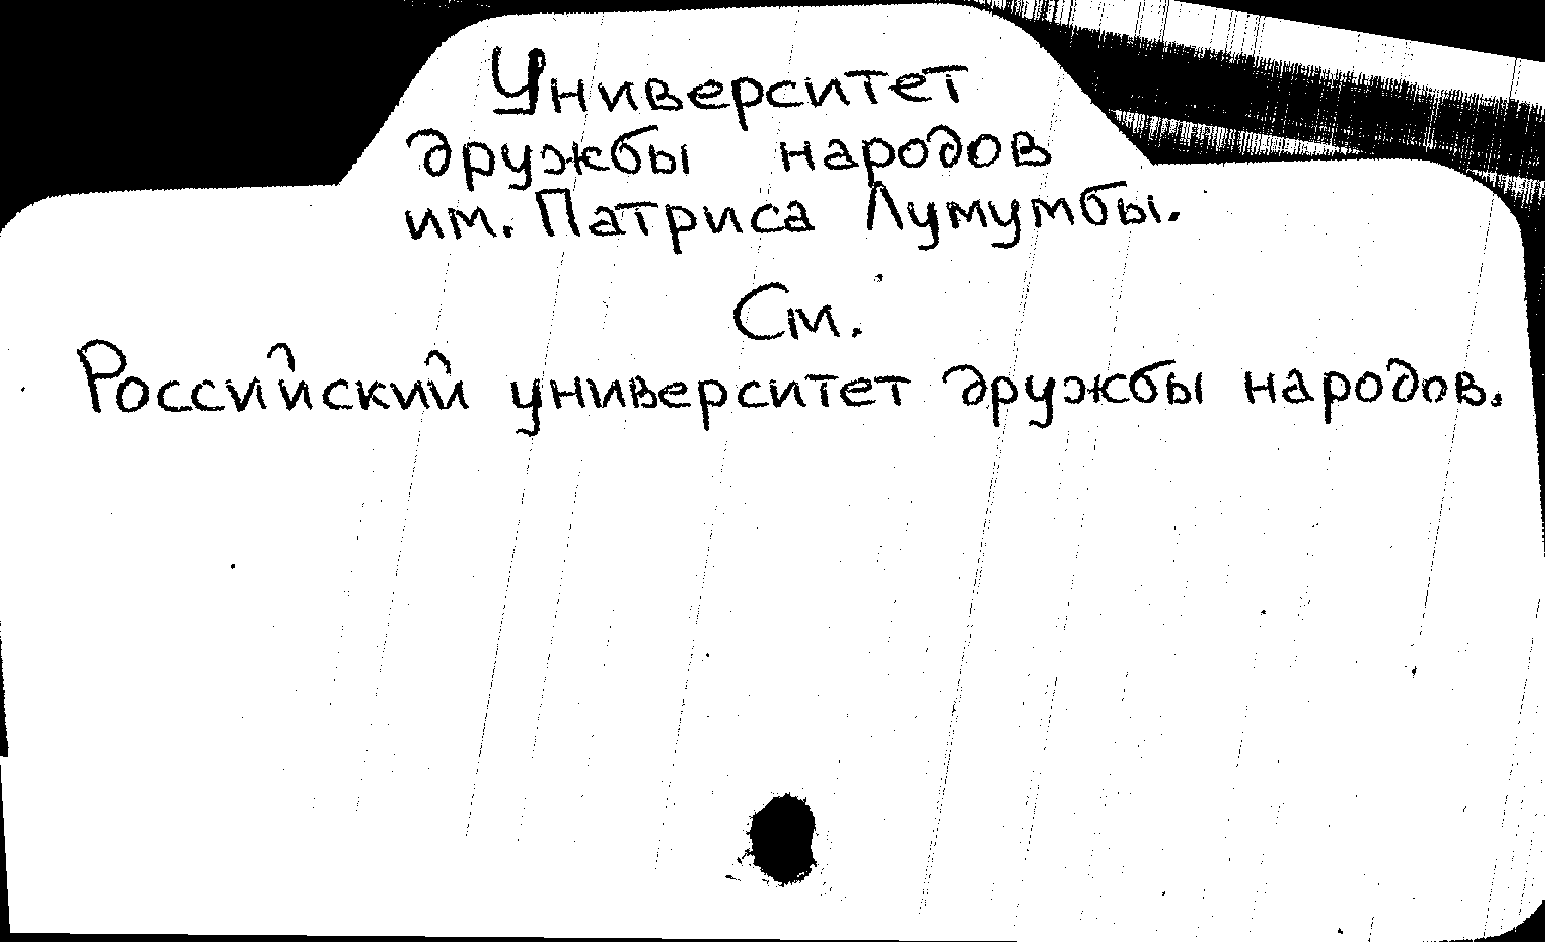 Университет
дружбы народов
им. Патриса Лумумбы.
См.
Российский университет дружбы народов.